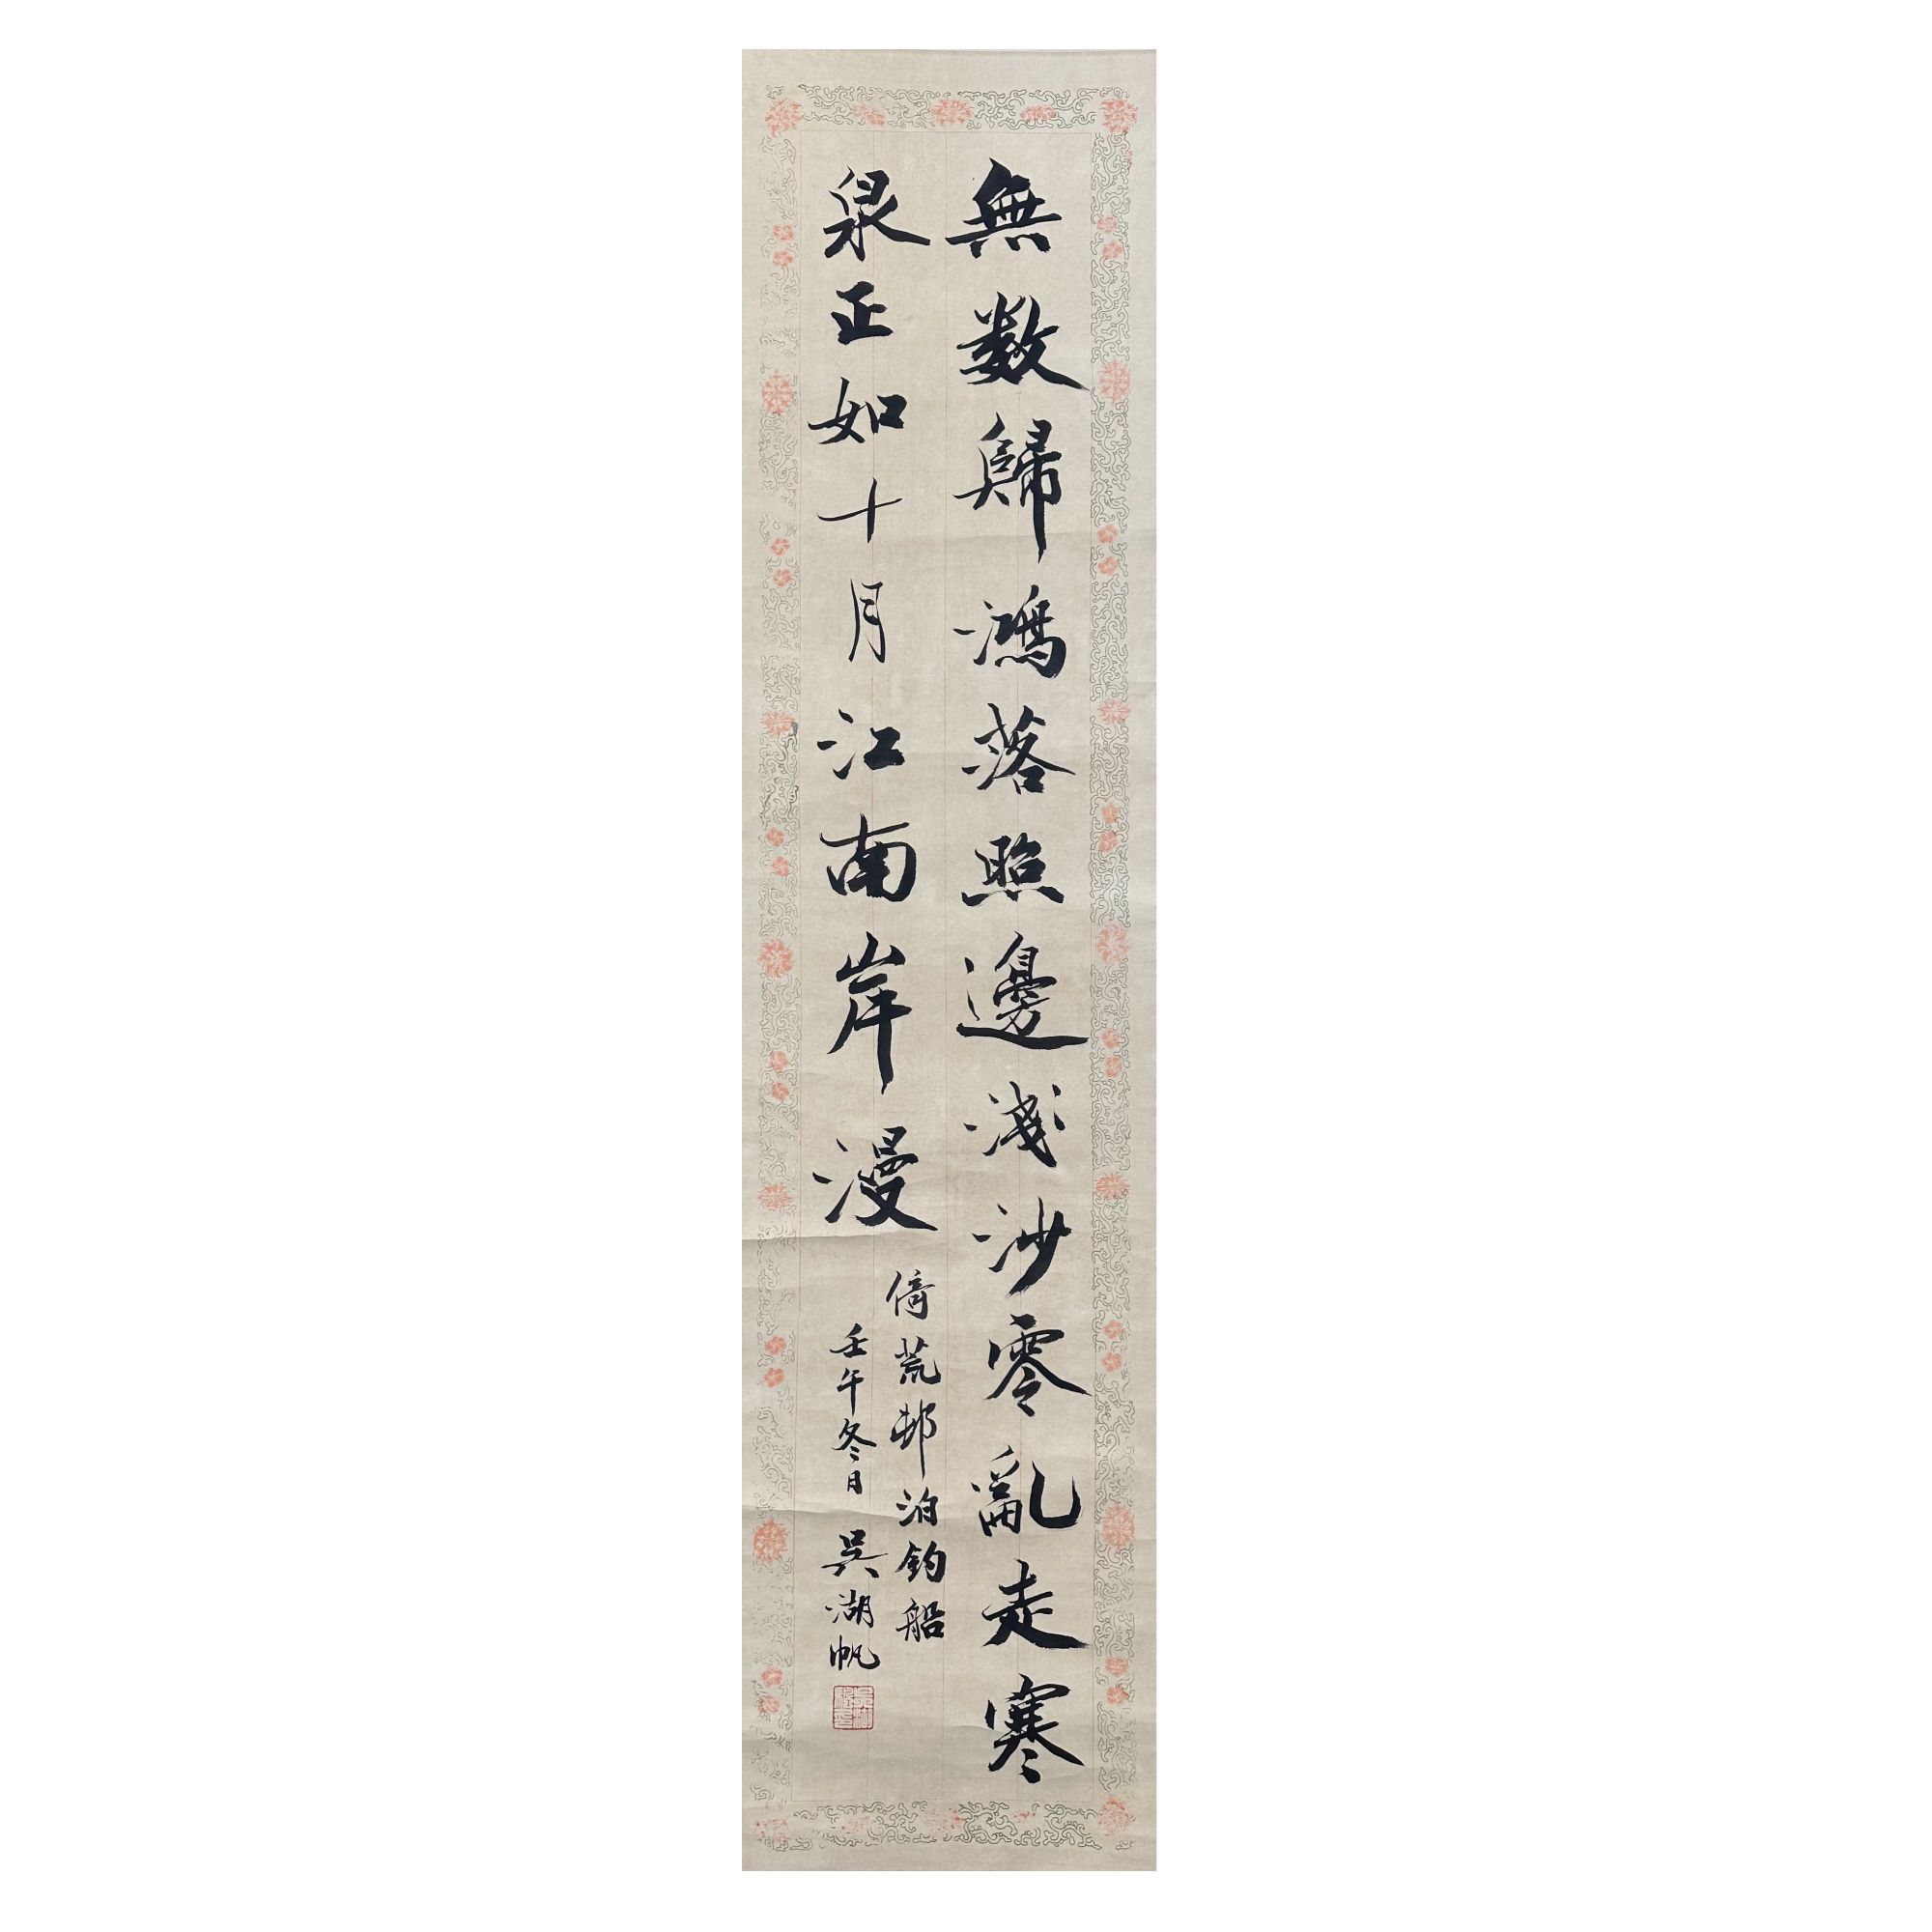 無数歸鴻落照邊淺沙零亂走寒
泉正如十月江南岸漫
倚荒邨泊釣船
壬午冬日吳湖帆